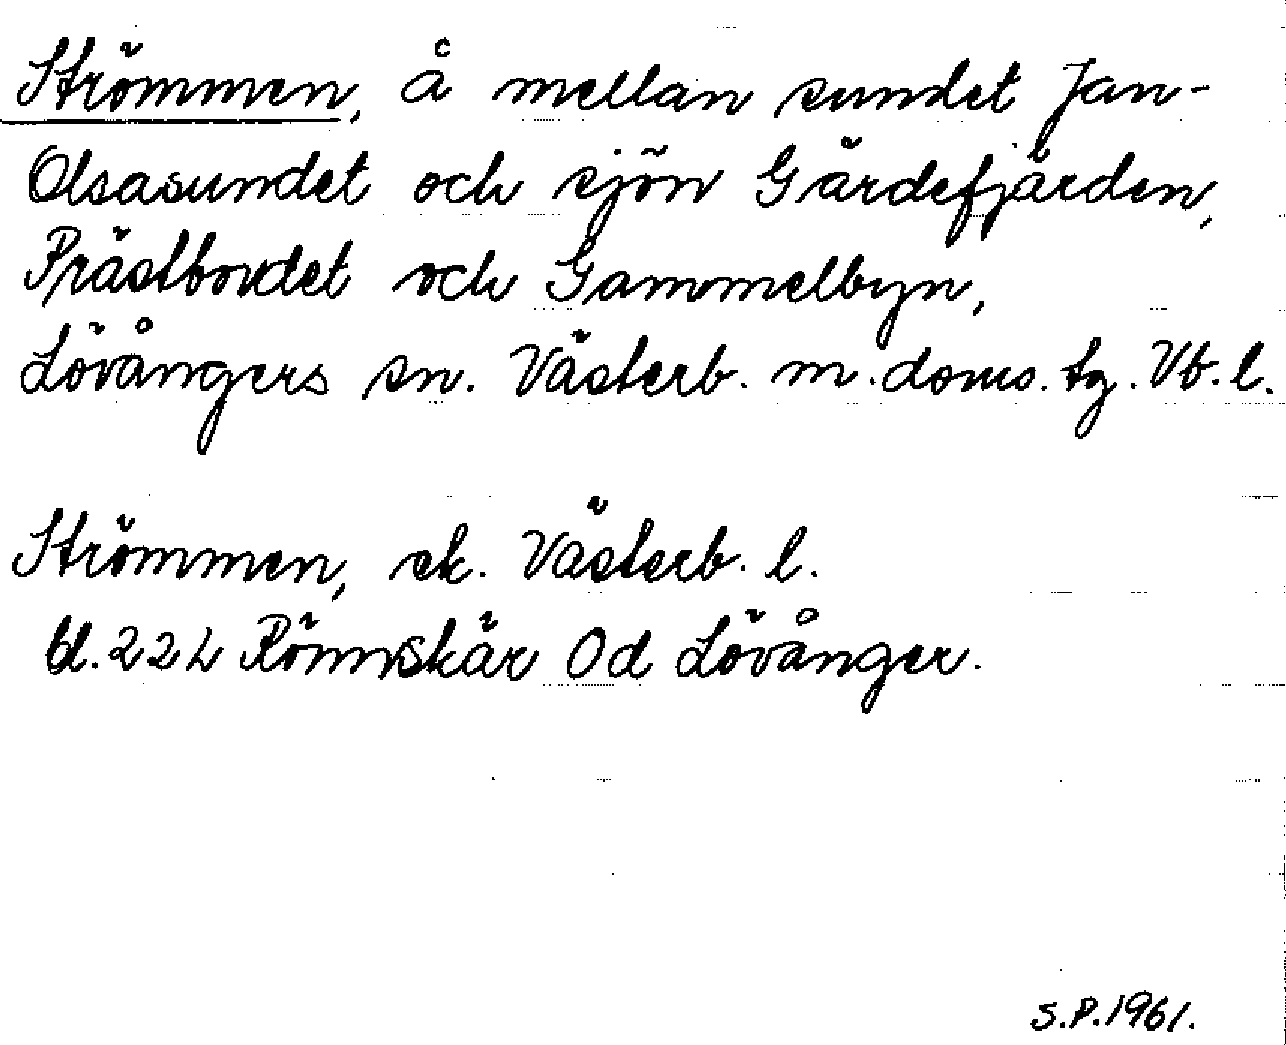 Strömmen, å mellan sundet Jan-
Olsasundet och sjön Gärdefjärden,
Prästbordet och Gammelbyn,
Lövångers sn. Västerb. m. doms. tg. Vb. l.
Strömmen, ek. Västerb. l.
bl. 22L Rönnskär Od Lövånger.
S.P. 1961.